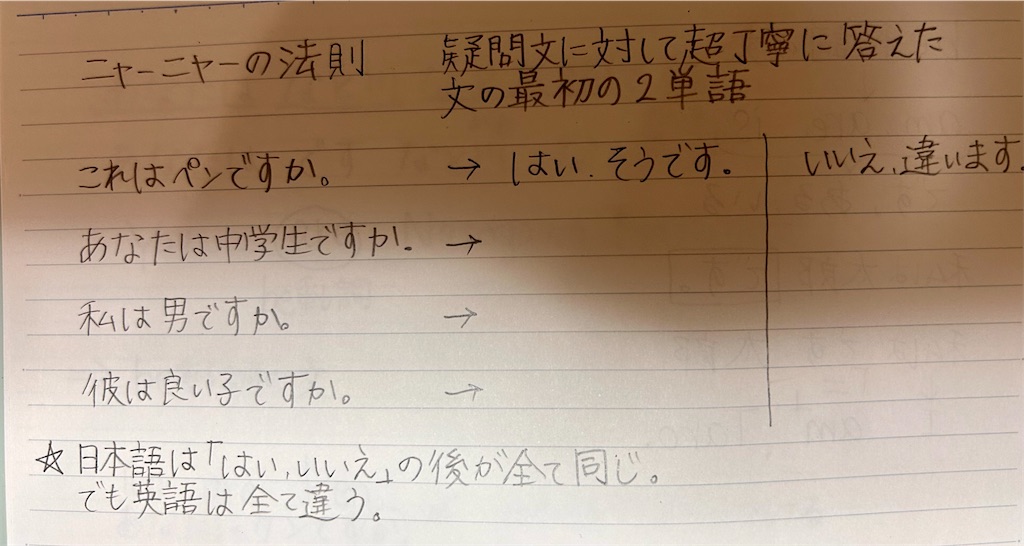 ニャーニャーの法則 疑問文に対して超丁寧に答えた
文の最初の2単語
これはペンですか。 → はい、そうです。 いいえ、違います。
あなたは中学生ですか。 →
私は男ですか。 →
彼は良い子ですか。 →
☆日本語は「はい、いいえ」の後が全て同じ。
でも英語は全て違う。